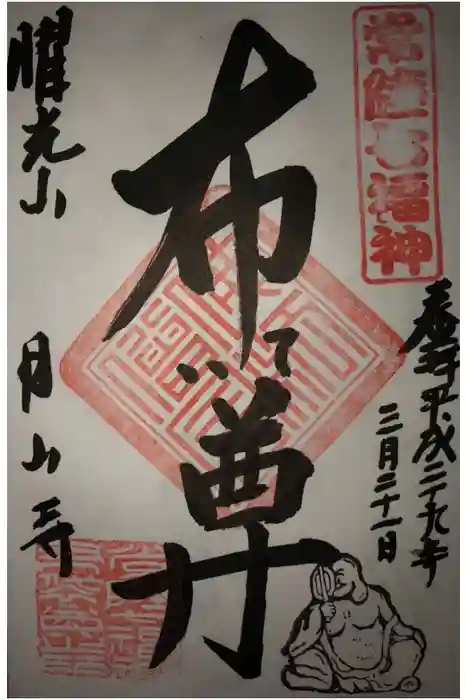 常陸七福神
奉拝 平成二十九年
三月二十一日
布袋尊
曜光山 月山寺